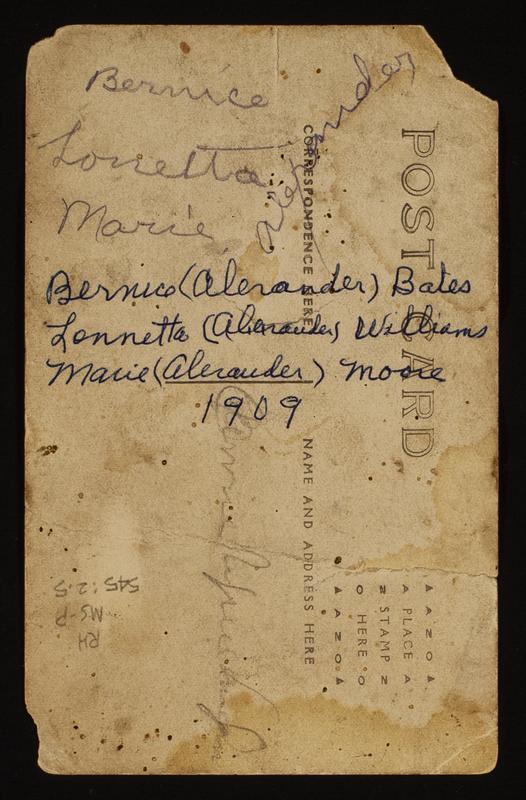 Bernice
Lonetta
Marie
Alexander
Bernice (Alexander) Bates
Lonnetta (Alexander) Williams
Marie (Alexander) Moore
1909
POST CARD
CORRESPONDENCE HERE
NAME AND ADDRESS HERE
AZO
PLACE
STAMP
HERE
AZO
RH
MS-P
545:2.5